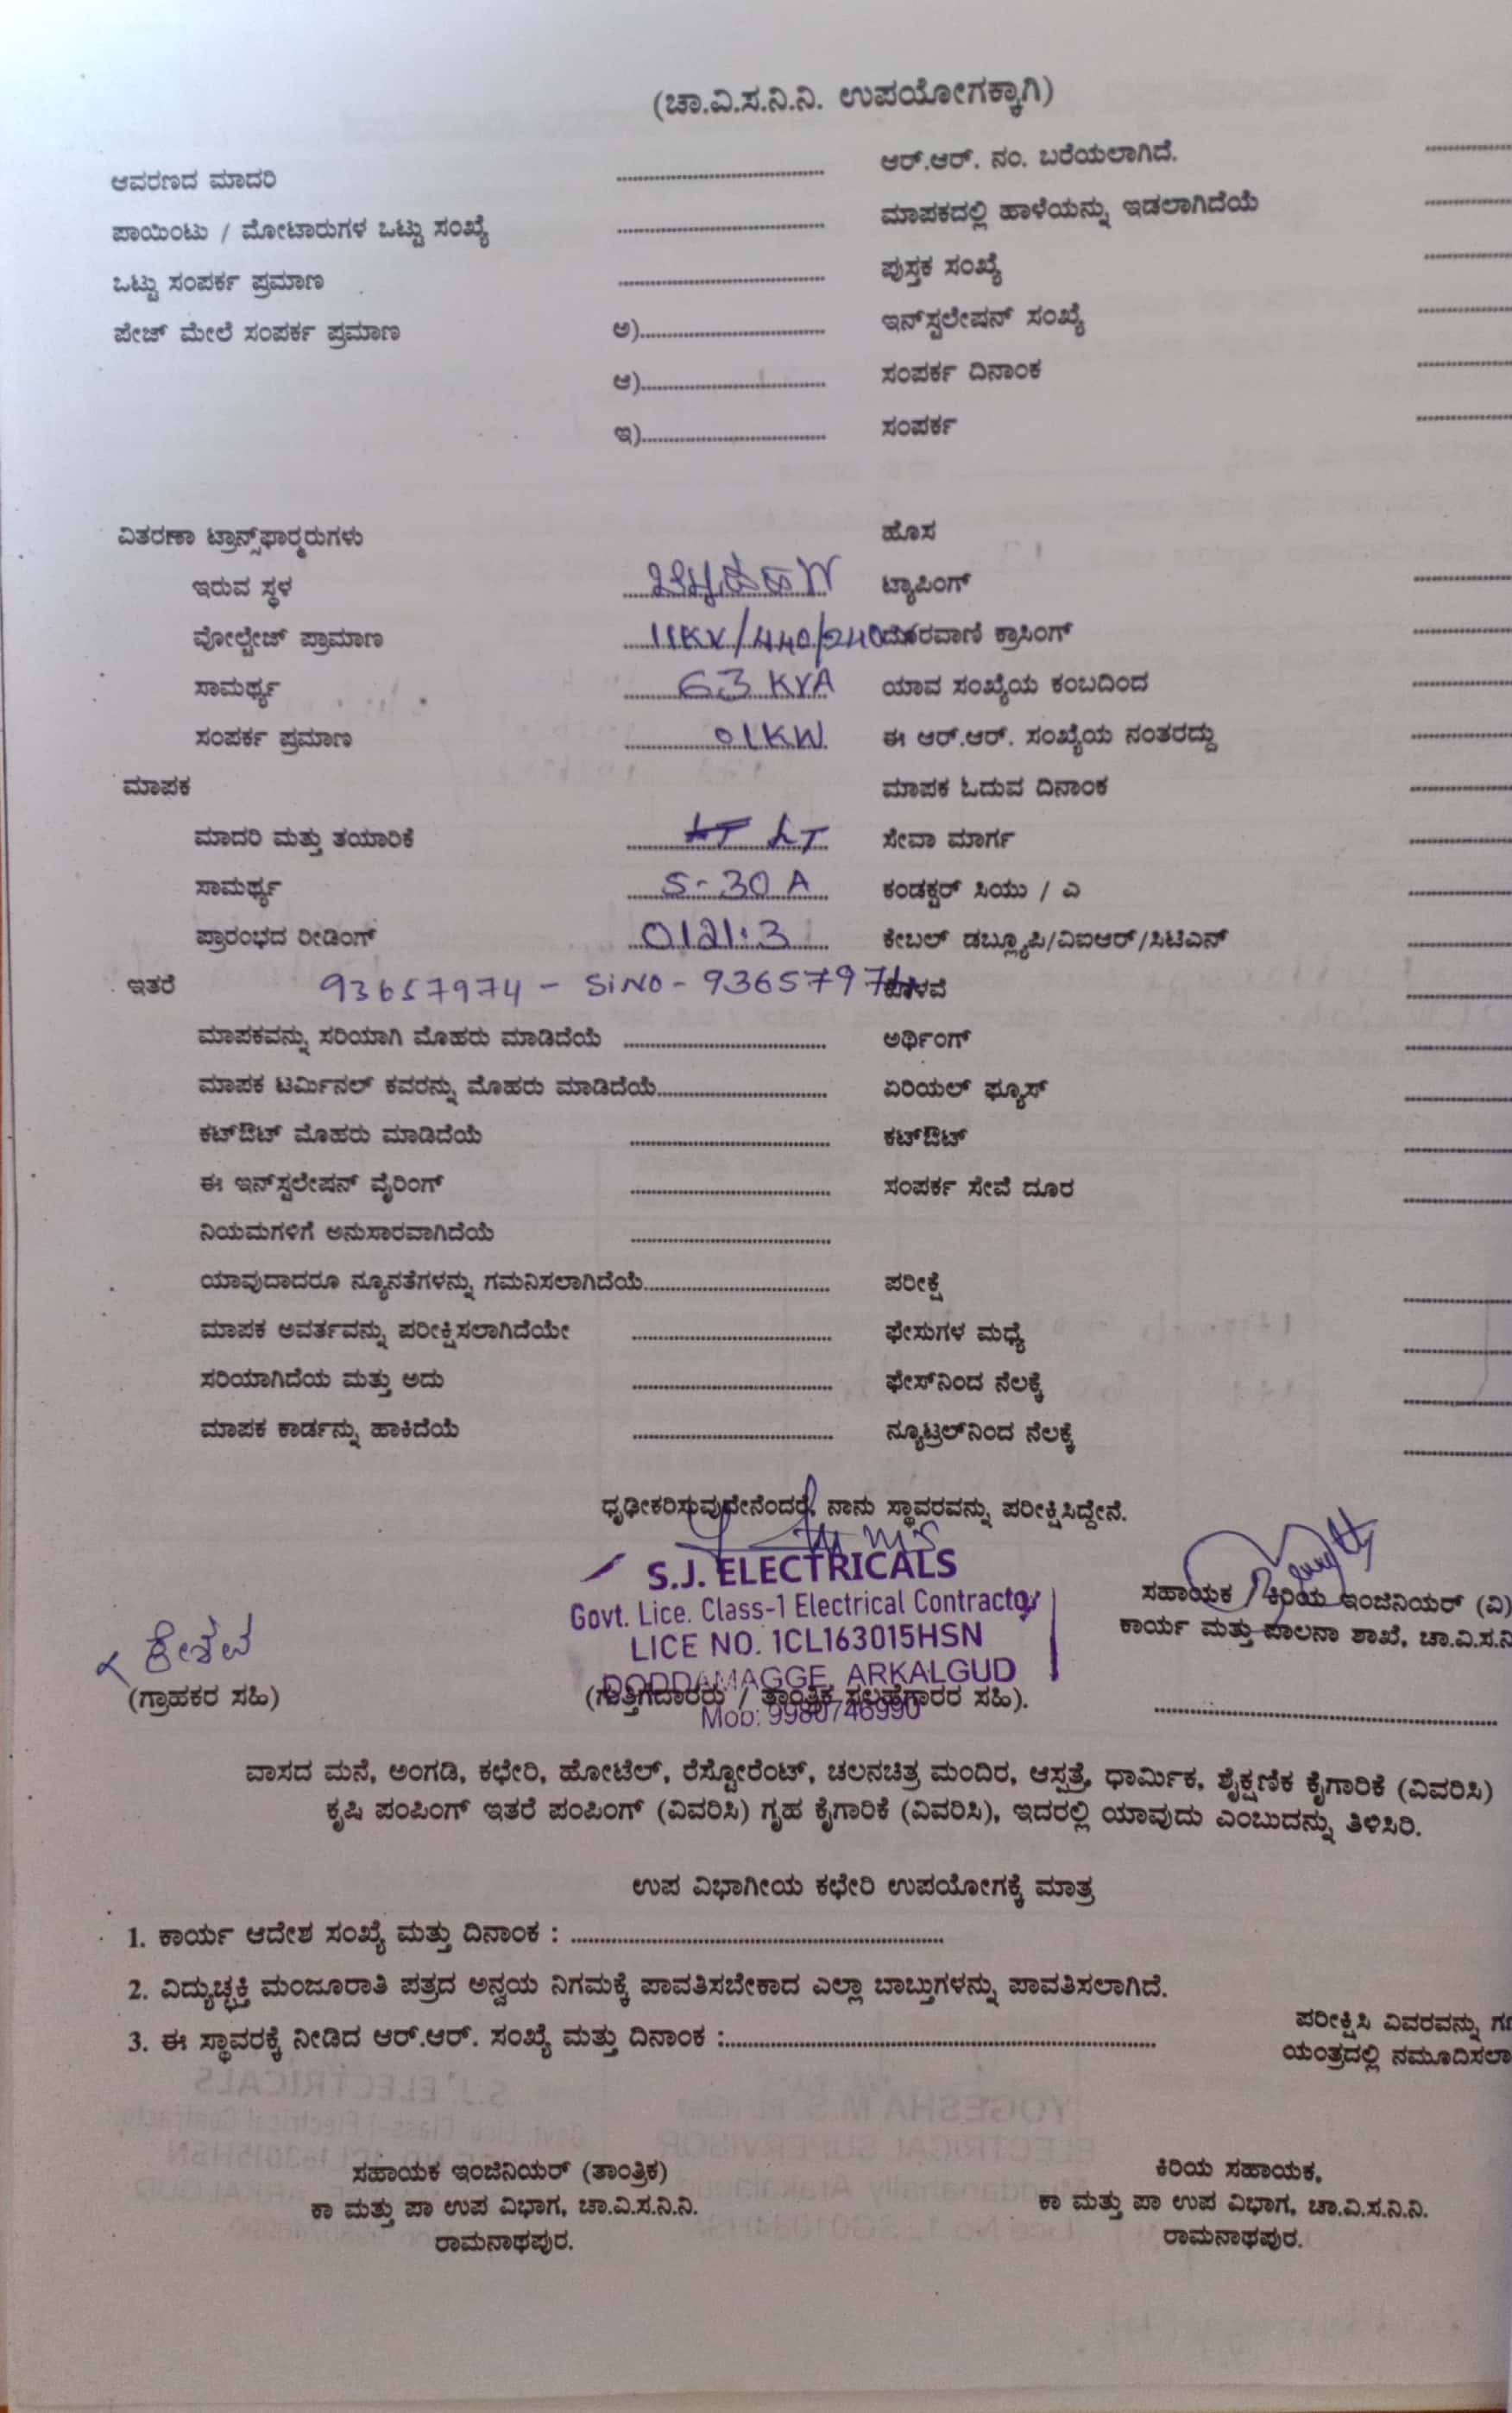 (ಚಾ.ವಿ.ಸ.ನಿ.ನಿ. ಉಪಯೋಗಕ್ಕಾಗಿ)
ಆವರಣದ ಮಾದರಿ .......... ಆರ್.ಆರ್. ನಂ. ಬರೆಯಲಾಗಿದೆ. ..........
ಪಾಯಿಂಟು / ಮೋಟಾರುಗಳ ಒಟ್ಟು ಸಂಖ್ಯೆ .......... ಮಾಪಕದಲ್ಲಿ ಹಾಳೆಯನ್ನು ಇಡಲಾಗಿದೆಯೆ ..........
ಒಟ್ಟು ಸಂಪರ್ಕ ಪ್ರಮಾಣ .......... ಪುಸ್ತಕ ಸಂಖ್ಯೆ ..........
ಪೇಜ್ ಮೇಲೆ ಸಂಪರ್ಕ ಪ್ರಮಾಣ ಅ).......... ಇನ್‌ಸ್ಟಲೇಷನ್ ಸಂಖ್ಯೆ ..........
ಆ).......... ಸಂಪರ್ಕ ದಿನಾಂಕ ..........
ಇ).......... ಸಂಪರ್ಕ ..........
ವಿತರಣಾ ಟ್ರಾನ್ಸ್‌ಫಾರ್ಮರುಗಳು ಹೊಸ
ಇರುವ ಸ್ಥಳ ಟ್ಯಾಪಿಂಗ್ ..........
ವೋಲ್ಟೇಜ್ ಪ್ರಾಮಾಣ 11KV/440/240 ದೂರವಾಣಿ ಕ್ರಾಸಿಂಗ್ ..........
ಸಾಮರ್ಥ್ಯ 63 KVA ಯಾವ ಸಂಖ್ಯೆಯ ಕಂಬದಿಂದ ..........
ಸಂಪರ್ಕ ಪ್ರಮಾಣ 01KW ಈ ಆರ್.ಆರ್. ಸಂಖ್ಯೆಯ ನಂತರದ್ದು ..........
ಮಾಪಕ ಮಾಪಕ ಓದುವ ದಿನಾಂಕ ..........
ಮಾದರಿ ಮತ್ತು ತಯಾರಿಕೆ LT ಸೇವಾ ಮಾರ್ಗ ..........
ಸಾಮರ್ಥ್ಯ 5-30 A ಕಂಡಕ್ಟರ್ ಸಿಯು / ಎ ..........
ಪ್ರಾರಂಭದ ರೀಡಿಂಗ್ 0121.3 ಕೇಬಲ್ ಡಬ್ಲ್ಯೂಪಿ/ವಿಐಆರ್/ಸಿಟಿಎನ್ ..........
ಇತರೆ 93657974 - SiNO - 93657974 ಕೊಳವೆ ..........
ಮಾಪಕವನ್ನು ಸರಿಯಾಗಿ ಮೊಹರು ಮಾಡಿದೆಯೆ .......... ಅರ್ಥಿಂಗ್ ..........
ಮಾಪಕ ಟರ್ಮಿನಲ್ ಕವರನ್ನು ಮೊಹರು ಮಾಡಿದೆಯೆ.......... ಏರಿಯಲ್ ಫ್ಯೂಸ್ ..........
ಕಟ್‌ಔಟ್ ಮೊಹರು ಮಾಡಿದೆಯೆ .......... ಕಟ್‌ಔಟ್ ..........
ಈ ಇನ್‌ಸ್ಟಲೇಷನ್ ವೈರಿಂಗ್ .......... ಸಂಪರ್ಕ ಸೇವೆ ದೂರ ..........
ನಿಯಮಗಳಿಗೆ ಅನುಸಾರವಾಗಿದೆಯೆ ..........
ಯಾವುದಾದರೂ ನ್ಯೂನತೆಗಳನ್ನು ಗಮನಿಸಲಾಗಿದೆಯೆ.......... ಪರೀಕ್ಷೆ ..........
ಮಾಪಕ ಅವರ್ತವನ್ನು ಪರೀಕ್ಷಿಸಲಾಗಿದೆಯೇ .......... ಫೇಸುಗಳ ಮಧ್ಯೆ ..........
ಸರಿಯಾಗಿದೆಯ ಮತ್ತು ಅದು .......... ಫೇಸ್‌ನಿಂದ ನೆಲಕ್ಕೆ ..........
ಮಾಪಕ ಕಾರ್ಡನ್ನು ಹಾಕಿದೆಯೆ .......... ನ್ಯೂಟ್ರಲ್‌ನಿಂದ ನೆಲಕ್ಕೆ ..........
ಧೃಢೀಕರಿಸುವುದೇನೆಂದರೆ, ನಾನು ಸ್ಥಾವರವನ್ನು ಪರೀಕ್ಷಿಸಿದ್ದೇನೆ.
S.J. ELECTRICALS
Govt. Lice. Class-1 Electrical Contractor
LICE NO. 1CL163015HSN
DODDAMAGGE, ARKALGUD
Mob: 9980746990
ಸಹಾಯಕ / ಕಿರಿಯ ಇಂಜಿನಿಯರ್ (ವಿ)
ಕಾರ್ಯ ಮತ್ತು ಪಾಲನಾ ಶಾಖೆ, ಚಾ.ವಿ.ಸ.ನಿ
ಕೇಶವ
(ಗ್ರಾಹಕರ ಸಹಿ) (ಗುತ್ತಿಗೆದಾರರು / ತಾಂತ್ರಿಕ ಸಲಹೆಗಾರರ ಸಹಿ). ..........
ವಾಸದ ಮನೆ, ಅಂಗಡಿ, ಕಛೇರಿ, ಹೋಟೆಲ್, ರೆಸ್ಟೋರೆಂಟ್, ಚಲನಚಿತ್ರ ಮಂದಿರ, ಆಸ್ಪತ್ರೆ, ಧಾರ್ಮಿಕ, ಶೈಕ್ಷಣಿಕ ಕೈಗಾರಿಕೆ (ವಿವರಿಸಿ)
ಕೃಷಿ ಪಂಪಿಂಗ್ ಇತರೆ ಪಂಪಿಂಗ್ (ವಿವರಿಸಿ) ಗೃಹ ಕೈಗಾರಿಕೆ (ವಿವರಿಸಿ), ಇದರಲ್ಲಿ ಯಾವುದು ಎಂಬುದನ್ನು ತಿಳಿಸಿರಿ.
ಉಪ ವಿಭಾಗೀಯ ಕಛೇರಿ ಉಪಯೋಗಕ್ಕೆ ಮಾತ್ರ
1. ಕಾರ್ಯ ಆದೇಶ ಸಂಖ್ಯೆ ಮತ್ತು ದಿನಾಂಕ : ..........
2. ವಿದ್ಯುಚ್ಛಕ್ತಿ ಮಂಜೂರಾತಿ ಪತ್ರದ ಅನ್ವಯ ನಿಗಮಕ್ಕೆ ಪಾವತಿಸಬೇಕಾದ ಎಲ್ಲಾ ಬಾಬ್ತುಗಳನ್ನು ಪಾವತಿಸಲಾಗಿದೆ.
3. ಈ ಸ್ಥಾವರಕ್ಕೆ ನೀಡಿದ ಆರ್.ಆರ್. ಸಂಖ್ಯೆ ಮತ್ತು ದಿನಾಂಕ :..........
ಪರೀಕ್ಷಿಸಿ ವಿವರವನ್ನು
ಯಂತ್ರದಲ್ಲಿ ನಮೂದಿಸಲಾ
ಸಹಾಯಕ ಇಂಜಿನಿಯರ್ (ತಾಂತ್ರಿಕ) ಕಿರಿಯ ಸಹಾಯಕ,
ಕಾ ಮತ್ತು ಪಾ ಉಪ ವಿಭಾಗ, ಚಾ.ವಿ.ಸ.ನಿ.ನಿ. ಕಾ ಮತ್ತು ಪಾ ಉಪ ವಿಭಾಗ, ಚಾ.ವಿ.ಸ.ನಿ.ನಿ.
ರಾಮನಾಥಪುರ. ರಾಮನಾಥಪುರ.